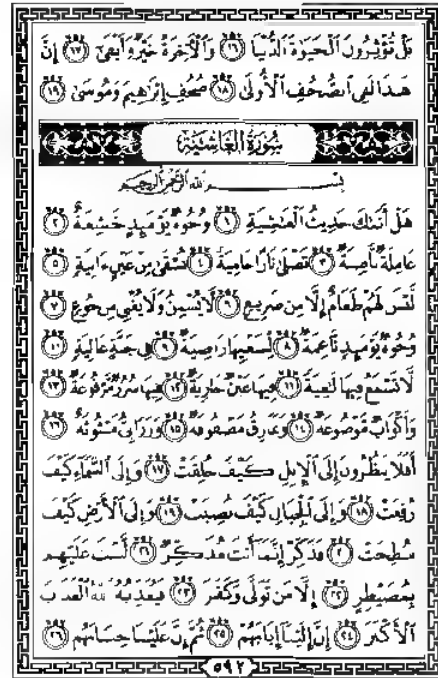 بَلْ تُؤْثِرُونَ الْحَيَوٰةَ الدُّنْيَا ١٦ وَالْآخِرَةُ خَيْرٌ وَأَبْقَىٰ ١٧ إِنَّ
هَٰذَا لَفِي الصُّحُفِ الْأُولَىٰ ١٨ صُحُفِ إِبْرَاهِيمَ وَمُوسَىٰ ١٩
سُورَةُ الْغَاشِيَةِ
بِسْمِ اللَّهِ الرَّحْمَٰنِ الرَّحِيمِ
هَلْ أَتَىٰكَ حَدِيثُ الْغَاشِيَةِ ١ وُجُوهٌ يَوْمَئِذٍ خَاشِعَةٌ ٢
عَامِلَةٌ نَّاصِبَةٌ ٣ تَصْلَىٰ نَارًا حَامِيَةً ٤ تُسْقَىٰ مِنْ عَيْنٍ ءَانِيَةٍ ٥
لَّيْسَ لَهُمْ طَعَامٌ إِلَّا مِن ضَرِيعٍ ٦ لَّا يُسْمِنُ وَلَا يُغْنِي مِن جُوعٍ ٧
وُجُوهٌ يَوْمَئِذٍ نَّاعِمَةٌ ٨ لِّسَعْيِهَا رَاضِيَةٌ ٩ فِي جَنَّةٍ عَالِيَةٍ ١٠
لَّا تَسْمَعُ فِيهَا لَاغِيَةً ١١ فِيهَا عَيْنٌ جَارِيَةٌ ١٢ فِيهَا سُرُرٌ مَّرْفُوعَةٌ ١٣
وَأَكْوَابٌ مَّوْضُوعَةٌ ١٤ وَنَمَارِقُ مَصْفُوفَةٌ ١٥ وَزَرَابِيُّ مَبْثُوثَةٌ ١٦
أَفَلَا يَنظُرُونَ إِلَى الْإِبِلِ كَيْفَ خُلِقَتْ ١٧ وَإِلَى السَّمَاءِ كَيْفَ
رُفِعَتْ ١٨ وَإِلَى الْجِبَالِ كَيْفَ نُصِبَتْ ١٩ وَإِلَى الْأَرْضِ كَيْفَ
سُطِحَتْ ٢٠ فَذَكِّرْ إِنَّمَا أَنتَ مُذَكِّرٌ ٢١ لَّسْتَ عَلَيْهِم
بِمُصَيْطِرٍ ٢٢ إِلَّا مَن تَوَلَّىٰ وَكَفَرَ ٢٣ فَيُعَذِّبُهُ اللَّهُ الْعَذَابَ
الْأَكْبَرَ ٢٤ إِنَّ إِلَيْنَا إِيَابَهُمْ ٢٥ ثُمَّ إِنَّ عَلَيْنَا حِسَابَهُم ٢٦
٥٩٢